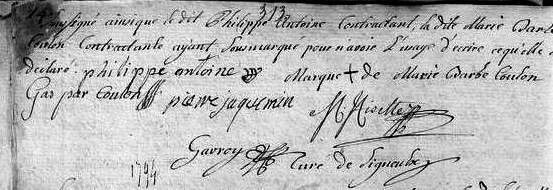 313
soussigné ainsique le dit Philippe Antoine Contractant, la dite Marie Barbe
Coulon Contractante ayant sousmarque pour n'avoir L'usage d'écrire cequ'elle a
déclaré. philippe antoine Marque + de Marie Barbe Coulon
Gaspar Coulon pierre jaquemin
Gavroy Curé de
1794